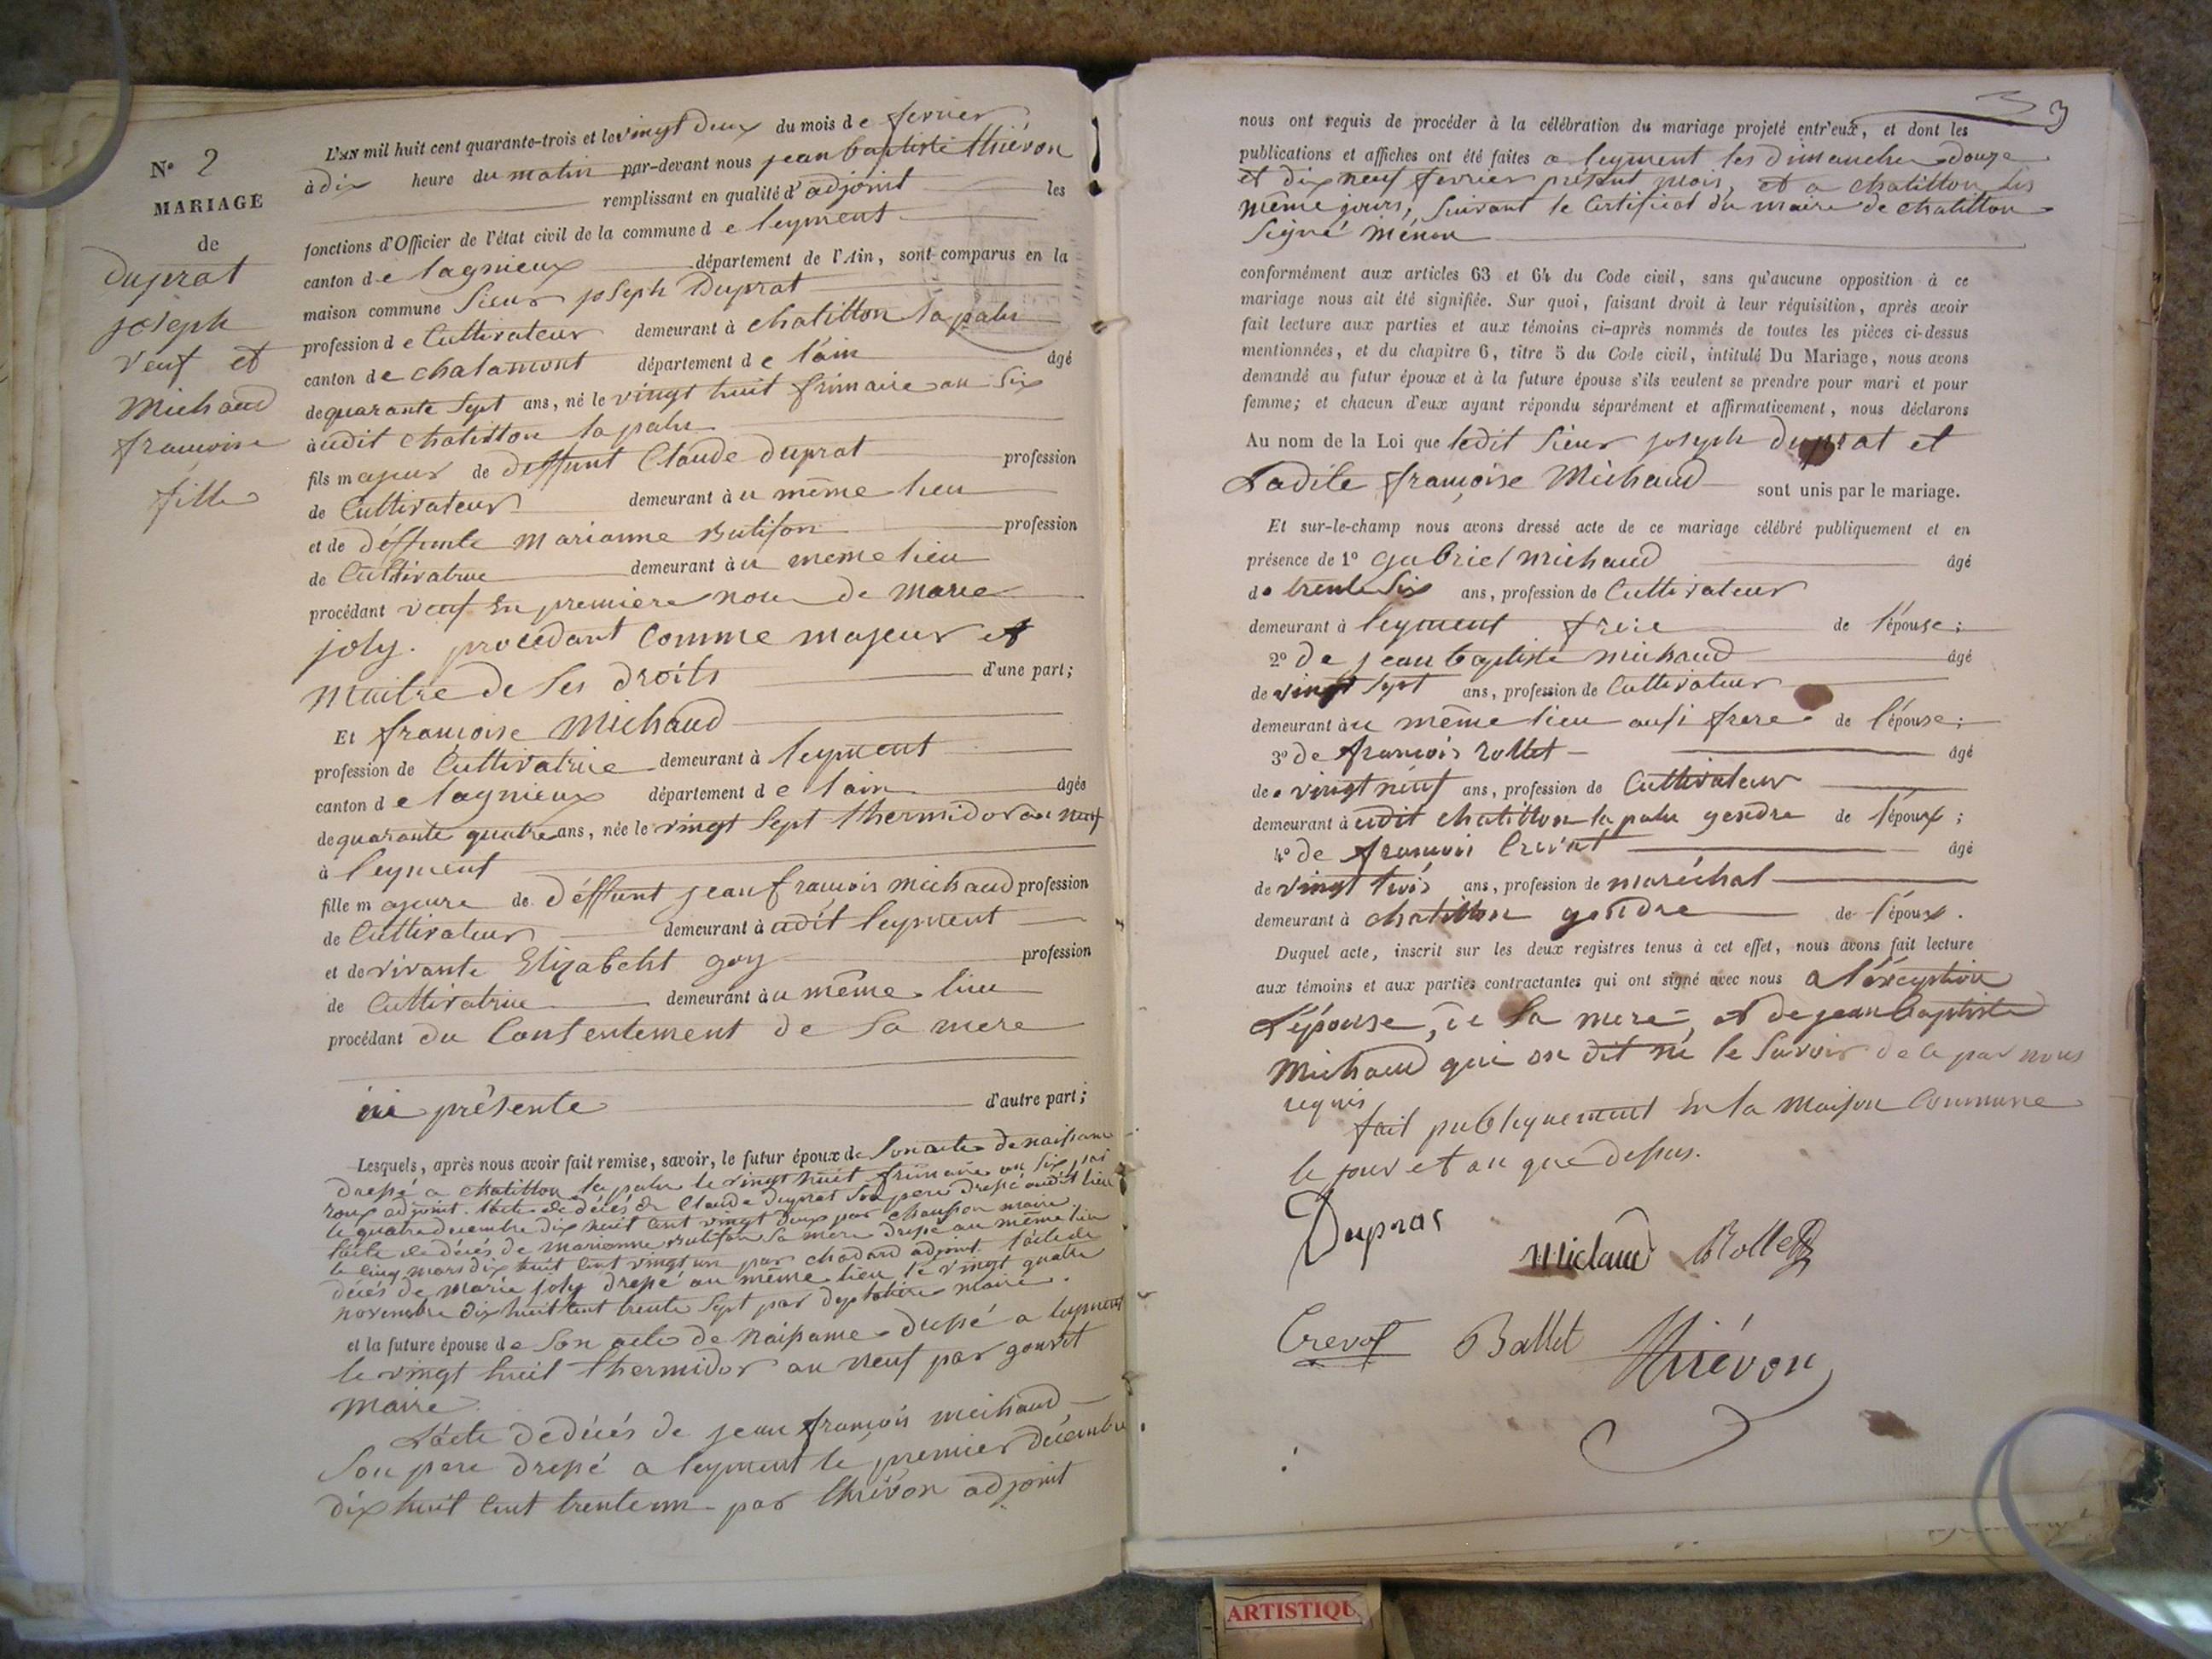 N° 2
MARIAGE
de
Duprat
joseph
veuf et
Michaud
françoise
fille
L'AN mil huit cent quarante-trois et le vingt deux du mois de fevrier
à dix heure du matin par-devant nous jean baptiste thiévon
remplissant en qualité d'adjoint les
fonctions d'Officier de l'état civil de la commune de leyment
canton de lagnieux département de l'Ain, sont comparus en la
maison commune Sieur joseph Duprat
profession de Cultivateur demeurant à chatillon la palu
canton de chalamont département de l'ain âgé
de quarante sept ans, né le vingt huit frimaire an six
à udit chatillon la palu
fils majeur de deffunt Claude duprat profession
de Cultivateur demeurant à u même lieu
et de déffunte marianne Butifon profession
de Cultivatrice demeurant à u meme lieu
procédant veuf En premiere noce de marie
joly. procédant Comme majeur et
maitre de ses droits d'une part;
Et françoise Michaud
profession de Cultivatrice demeurant à leyment
canton de lagnieux département de l'ain âgée
de quarante quatre ans, née le vingt sept thermidor an neuf
à leyment
fille majeure de déffunt jean françois michaud profession
de Cultivateur demeurant à udit leyment
et de vivante Elizabeht goy profession
de Cultivatrice demeurant à u même lieu
procédant du Consentement de sa mere
ici présente d'autre part;
Lesquels, après nous avoir fait remise, savoir, le futur époux de son acte de naissance
dressé a chatillon la palu le vingt huit frimaire an six par
roux adjoint. l'acte de décés de Claude duprat son pere dressé audit lieu
le quatre decembre dix huit cent vingt deux par chausson maire.
l'acte de décés de marianne Butifon sa mere dressé au même lieu
le cinq mars dix huit cent vingt un par chodard adjoint. l'acte de
décés de marie joly dressé au même lieu le vingt quatre
novembre dix huit cent trente sept par maire.
et la future épouse de son acte de naissance dressé a leyment
le vingt huit thermidor an neuf par gouvet
maire.
L'acte de décés de jean françois michaud
son pere dressé a leyment le premier décembre
dix huit cent trente un par thiévon adjoint
3
nous ont requis de procéder à la célébration du mariage projeté entr'eux, et dont les
publications et affiches ont été faites a leyment les dimanches douze
et dix neuf fevrier présent mois, et a chatillon les
même jours, suivant le Certificat du maire de chatillon
signé ménou
conformément aux articles 63 et 64 du Code civil, sans qu'aucune opposition à ce
mariage nous ait été signifiée. Sur quoi, faisant droit à leur réquisition, après avoir
fait lecture aux parties et aux témoins ci-après nommés de toutes les pièces ci-dessus
mentionnées, et du chapitre 6, titre 5 du Code civil, intitulé Du Mariage, nous avons
demandé au futur époux et à la future épouse s'ils veulent se prendre pour mari et pour
femme; et chacun d'eux ayant répondu séparément et affirmativement, nous déclarons
Au nom de la Loi que ledit sieur joseph duprat et
Ladite françoise Michaud sont unis par le mariage.
Et sur-le-champ nous avons dressé acte de ce mariage célébré publiquement et en
présence de 1° gabriel michaud âgé
de trente six ans, profession de Cultivateur
demeurant à leyment frere de l'épouse;
2° de jean baptiste michaud âgé
de vingt sept ans, profession de Cultivateur
demeurant à u même lieu ausi frere de l'épouse;
3° de françois rollet âgé
de vingt neuf ans, profession de Cultivateur
demeurant à udit chatillon la palu gendre de l'époux;
4° de françois Crevat âgé
de vingt trois ans, profession de maréchal
demeurant à chatillon gendre de l'époux.
Duquel acte, inscrit sur les deux registres tenus à cet effet, nous avons fait lecture
aux témoins et aux parties contractantes qui ont signé avec nous a l'éxception
L'épouse, de sa mere, et de jean baptiste
Michaud qui on dit ne le savoir de ce par nous
requis
fait publiquement En la maison Commune
le jour et an que dessus.
Duprat
Michaud Rollet
Crevat Ballet Thiévon
ARTISTIQU